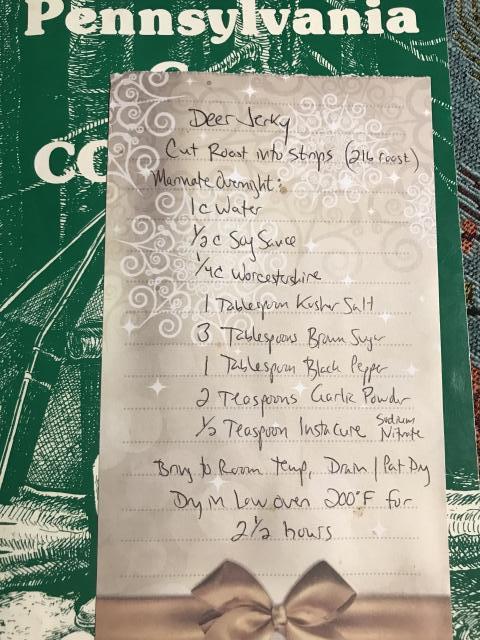 Pennsylvania
CO
Deer Jerky
Cut Roast into Strips (2lb roast)
Marinate Overnight:
1 c Water
1/2 c Soy Sauce
1/4 c Worcestershire
1 Tablespoon Kosher Salt
3 Tablespoons Brown Sugar
1 Tablespoon Black Pepper
2 Teaspoons Garlic Powder
1/2 Teaspoon Instacure Sodium Nitrate
Bring to Room Temp, Drain / Pat Dry
Dry in Low oven 200°F for
2 1/2 hours